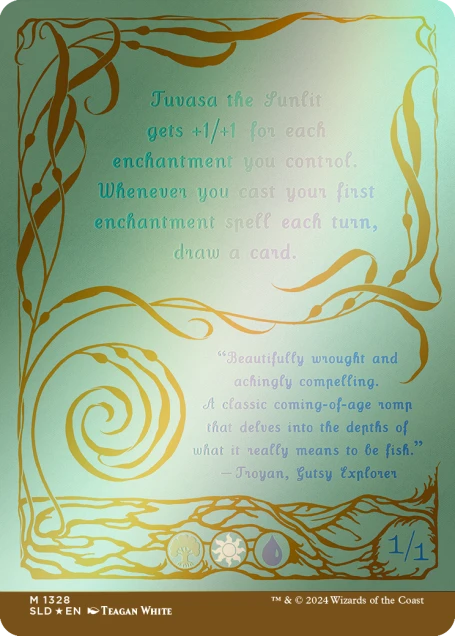 Tuvasa the Sunlit
gets +1/+1 for each
enchantment you control.
Whenever you cast your first
enchantment spell each turn,
draw a card.
“Beautifully wrought and
achingly compelling.
A classic coming-of-age romp
that delves into the depths of
what it really means to be fish.”
—Troyan, Gutsy Explorer
1/1
M 1328
SLD ★ EN TEAGAN WHITE
™ & © 2024 Wizards of the Coast